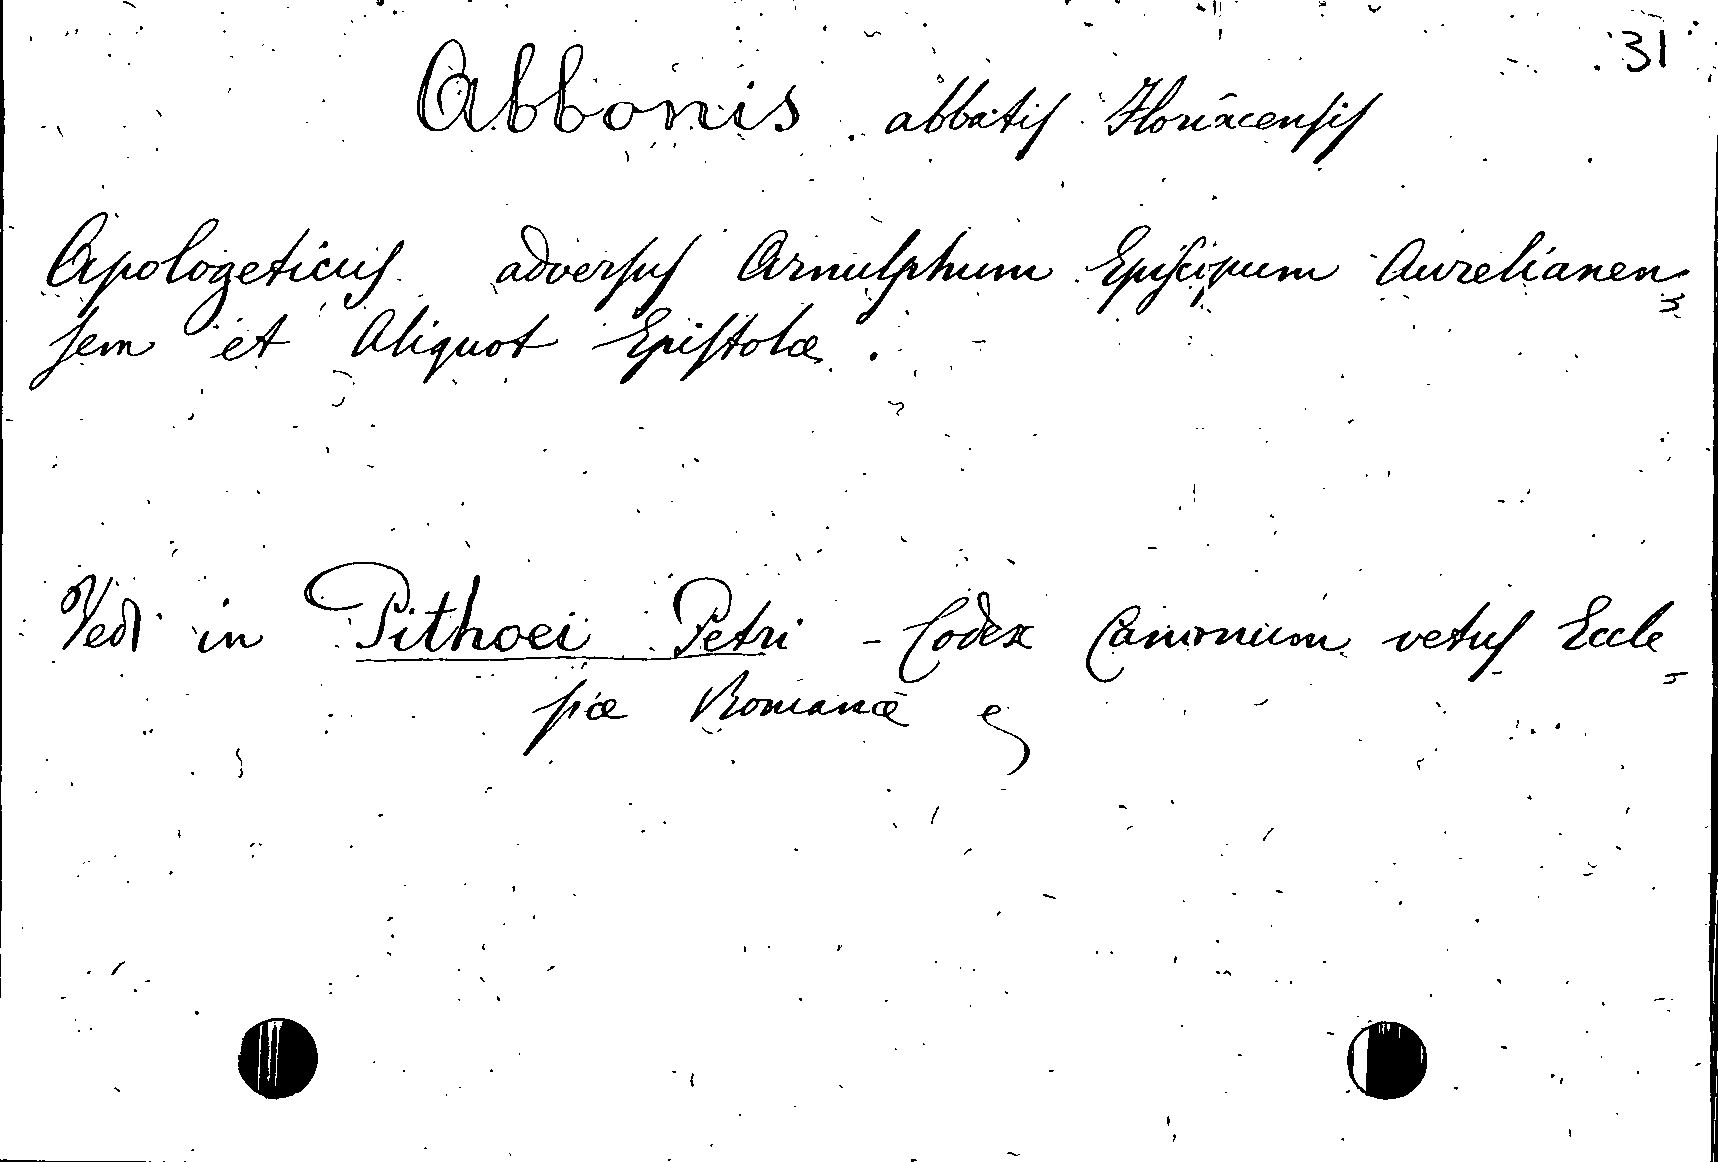 31
Abbonis abbatis Floriacensis
Apologeticus adversus Arnulphum Episcopum Aurelianen=
sem et Aliquot Epistolæ.
Vedi in Pithoei Petri - Codex Canonum vetus Eccle=
siæ Romanæ